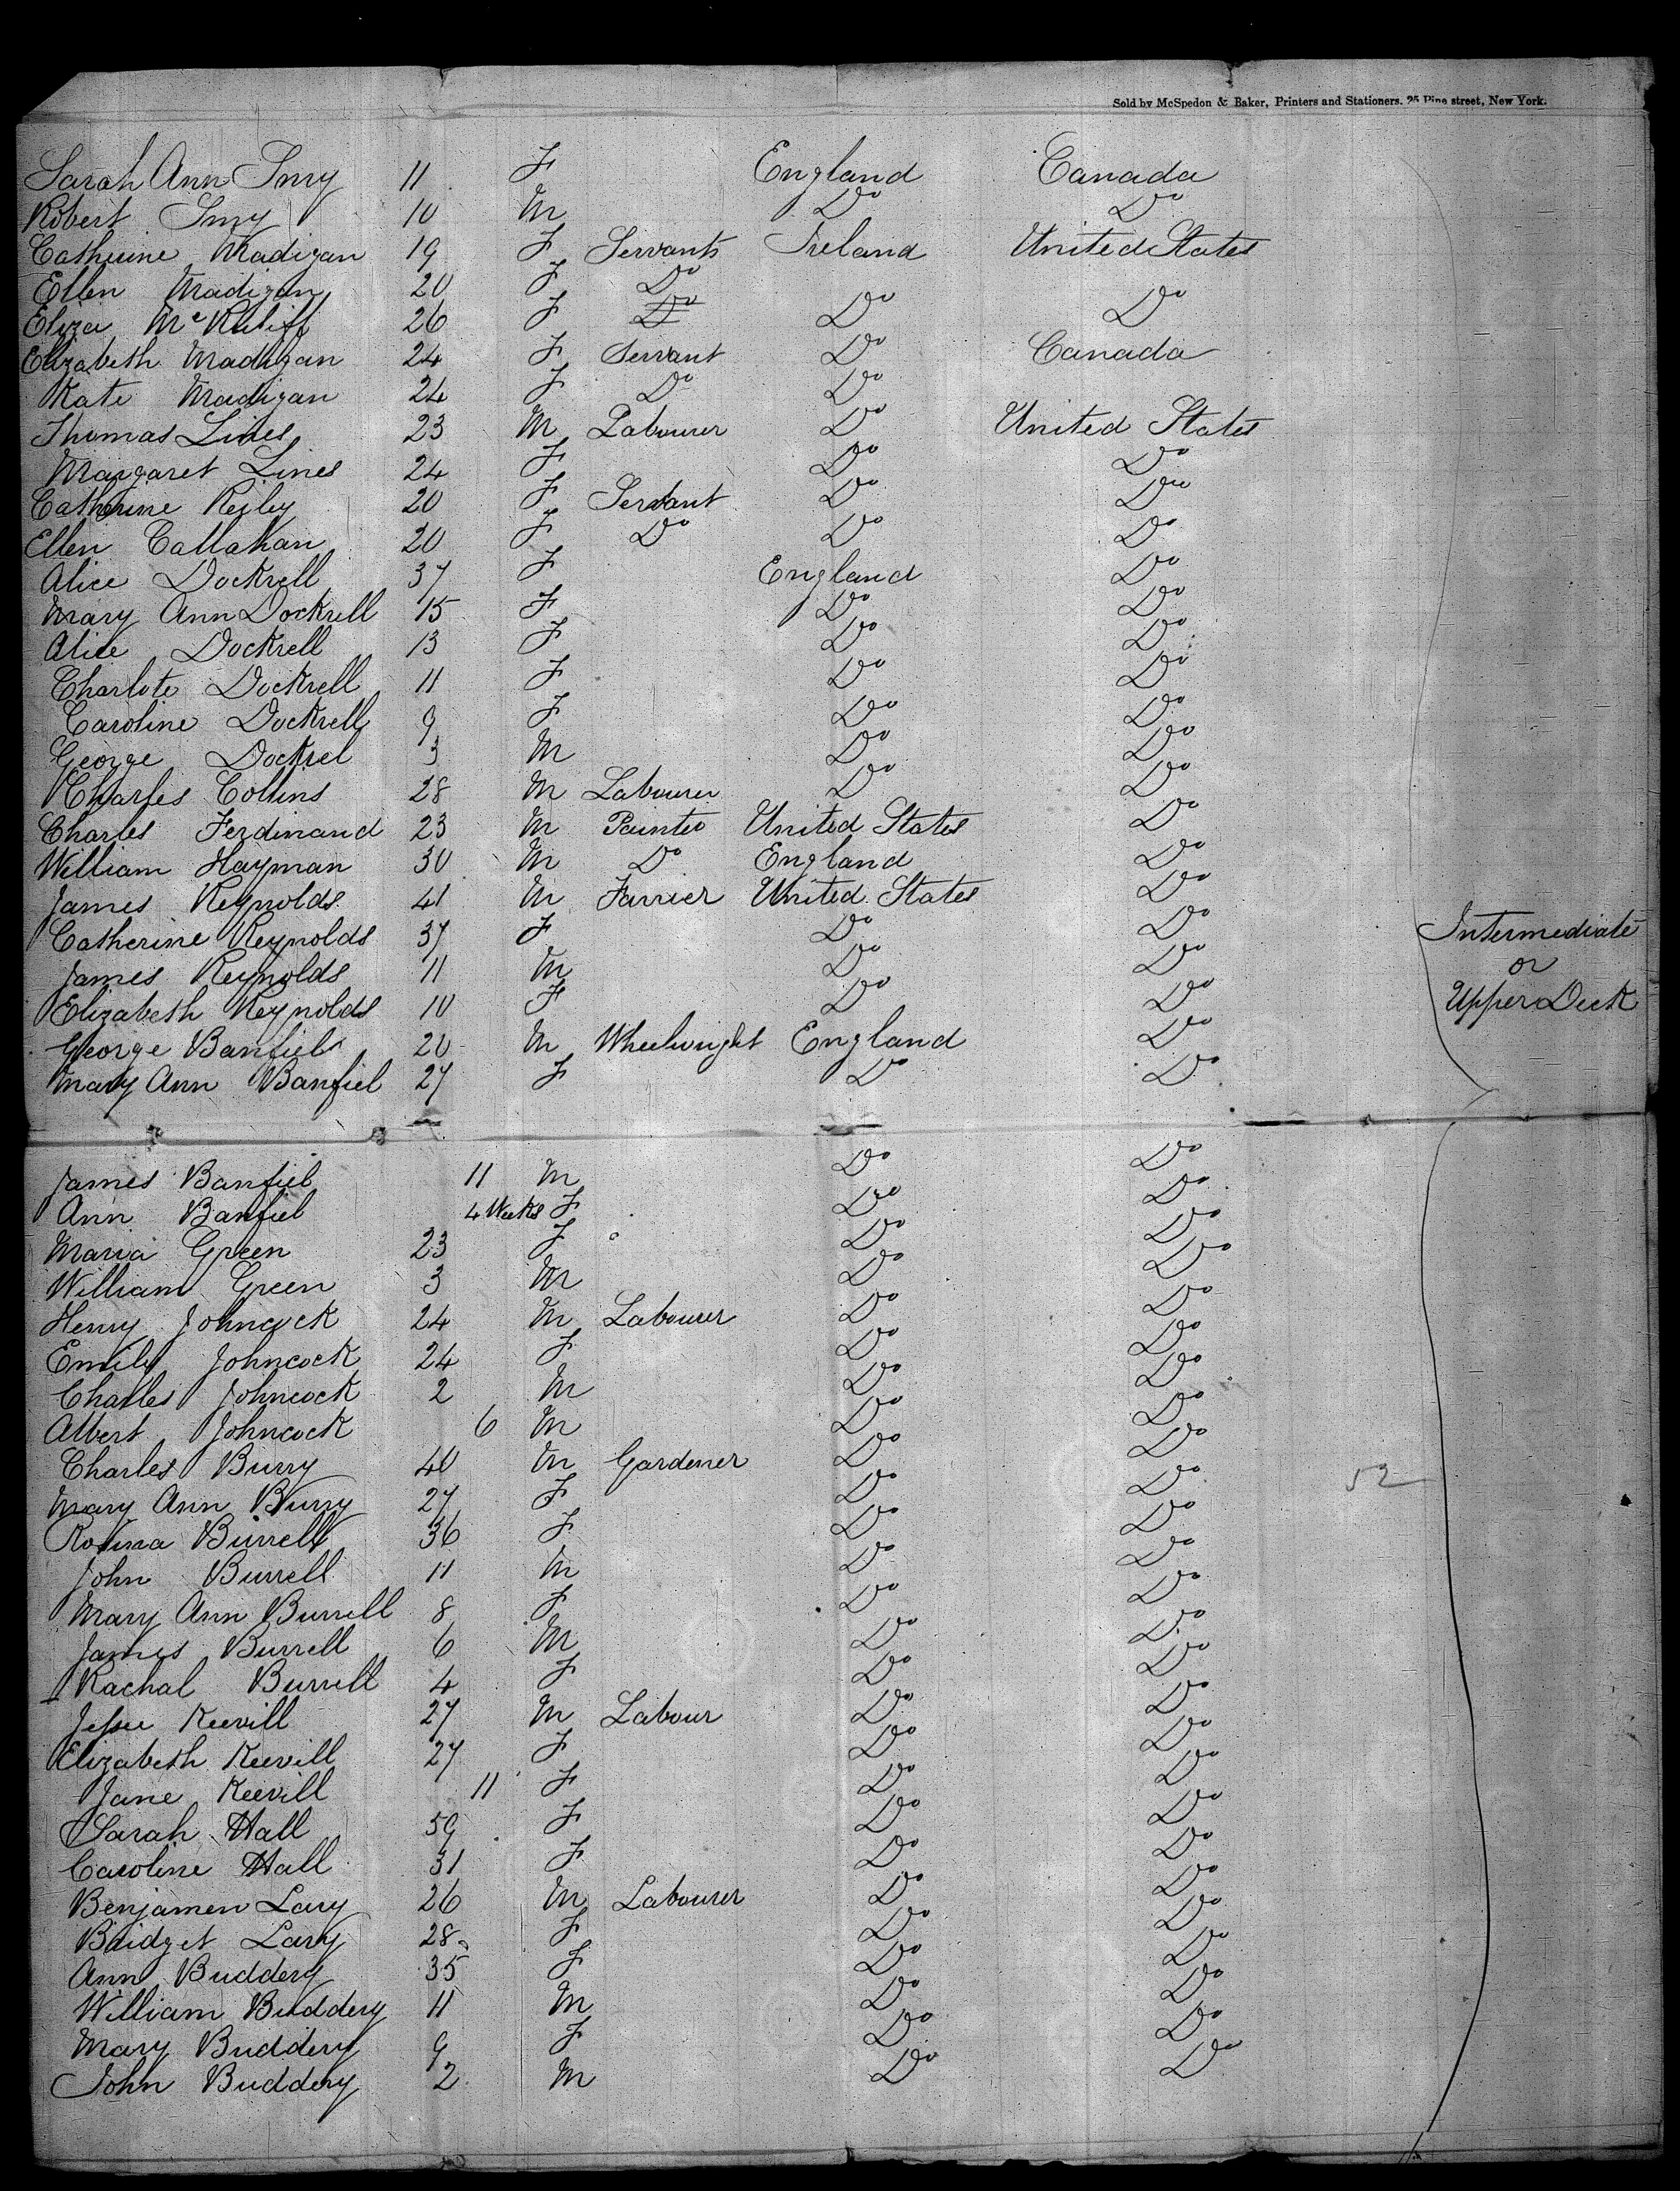 Sold by McSpedon & Baker, Printers and Stationers, 25 Pine street, New York.
Sarah Ann Smy 11 F England Canada
Robert Smy 10 M Do Do
Catherine Madigan 19 F Servants Ireland United States
Ellen Madigan 20 F Do
Eliza 26 F Do Do Do
Elizabeth Madigan 24 F Servant Do Canada
Kate Madigan 24 F Do Do
Thomas Lines 23 M Labourer Do United States
Margaret Lines 24 F Do Do
Catherine Reiley 20 F Servant Do Do
Ellen Callahan 20 F Do Do Do
Alice Dockrell 37 F England Do
Mary Ann Dockrell 15 F Do Do
Alice Dockrell 13 F Do Do
Charlote Dockrell 11 F Do Do
Caroline Dockrell 9 F Do Do
George Dockrel 3 M Do Do
Charles Collins 28 M Labourer Do Do
Charles Ferdinand 23 M Painter United States Do
William Hayman 30 M Do England Do
James Reynolds 41 M Farrier United States Do
Catherine Reynolds 37 F Do Do Intermediate
James Reynolds 11 M Do Do or
Elizabeth Reynolds 10 F Do Do Upper Deck
George Banfiel 20 M Wheelwright England Do
Mary Ann Banfiel 27 F Do Do
James Banfiel 11 M Do Do
Ann Banfiel 4 Weeks F Do Do
Maria Green 23 F Do Do
William Green 3 M Do Do
Henry Johncock 24 M Labourer Do Do
Emily Johncock 24 F Do Do
Charles Johncock 2 M Do Do
Albert Johncock 6 M Do Do
Charles Burry 40 M Gardener Do Do 52
Mary Ann Burry 27 F Do Do
Rosina Burrell 36 F Do Do
John Burrell 11 M Do Do
Mary Ann Burrell 8 F Do Do
James Burrell 6 M Do Do
Rachal Burrell 4 F Do Do
Jessee Keevill 27 M Labour Do Do
Elizabeth Keevill 27 F Do Do
Jane Keevill 11 F Do Do
Sarah Hall 59 F Do Do
Caroline Hall 31 F Do Do
Benjamen Lary 26 M Labourer Do Do
Bridget Lary 28 F Do Do
Ann Buddery 35 F Do Do
William Buddery 11 M Do Do
Mary Buddery 9 F Do Do
John Buddery 2 M Do Do